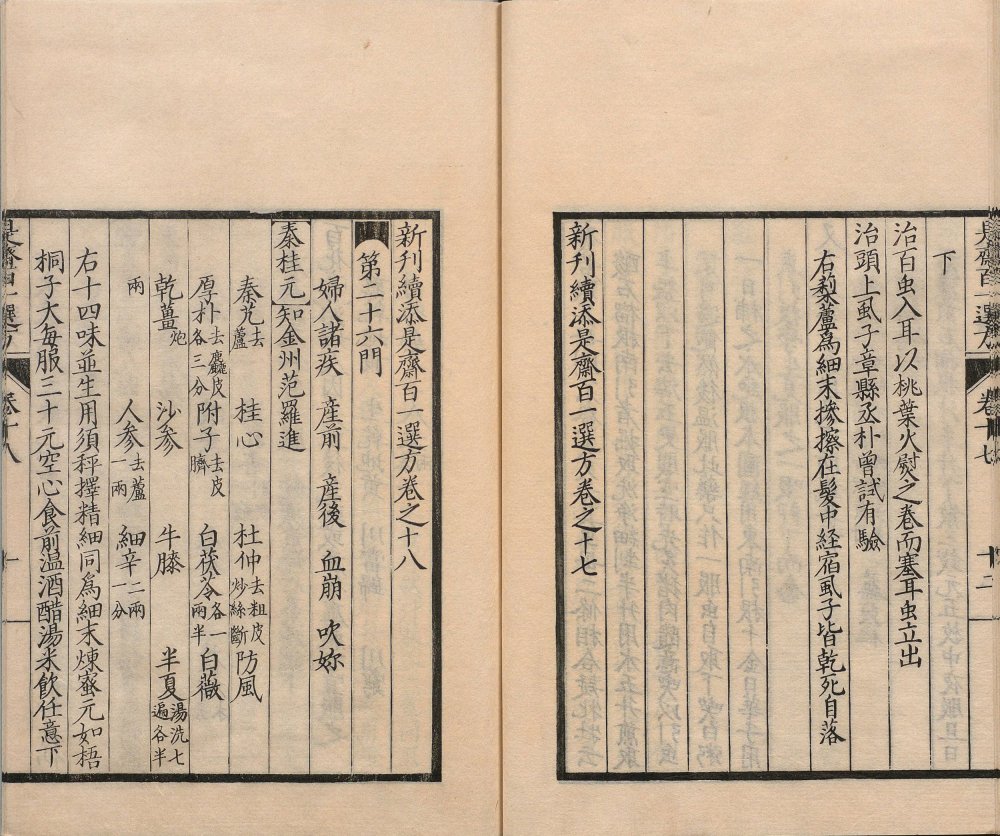 是齋百一選方 卷十七 十二
下
治百虫入耳以桃葉火熨之卷而塞耳虫立出
治頭上虱子章縣丞朴曾試有驗
右梨蘆為細末摻擦在髮中経宿虱子皆乾死自落
新刊續添是齋百一選方卷之十七
新刊續添是齋百一選方卷之十八
第二十六門
婦人諸疾 産前 産後 血崩 吹妳
秦桂元 知金州范羅進
秦艽去蘆 桂心 杜仲去粗皮炒絲斷 防風
厚朴去麤皮各三分 附子去皮臍 白茯苓各一兩半 白薇
乾薑炮 沙参 牛膝 半夏湯洗七遍各半
兩 人参去蘆一兩 細辛二兩一分
右十四味並生用須秤擇精細同爲細末煉蜜元如梧
桐子大每服三十元空心食前温酒醋湯米飲任意下
是齋百一選方 卷十八 一